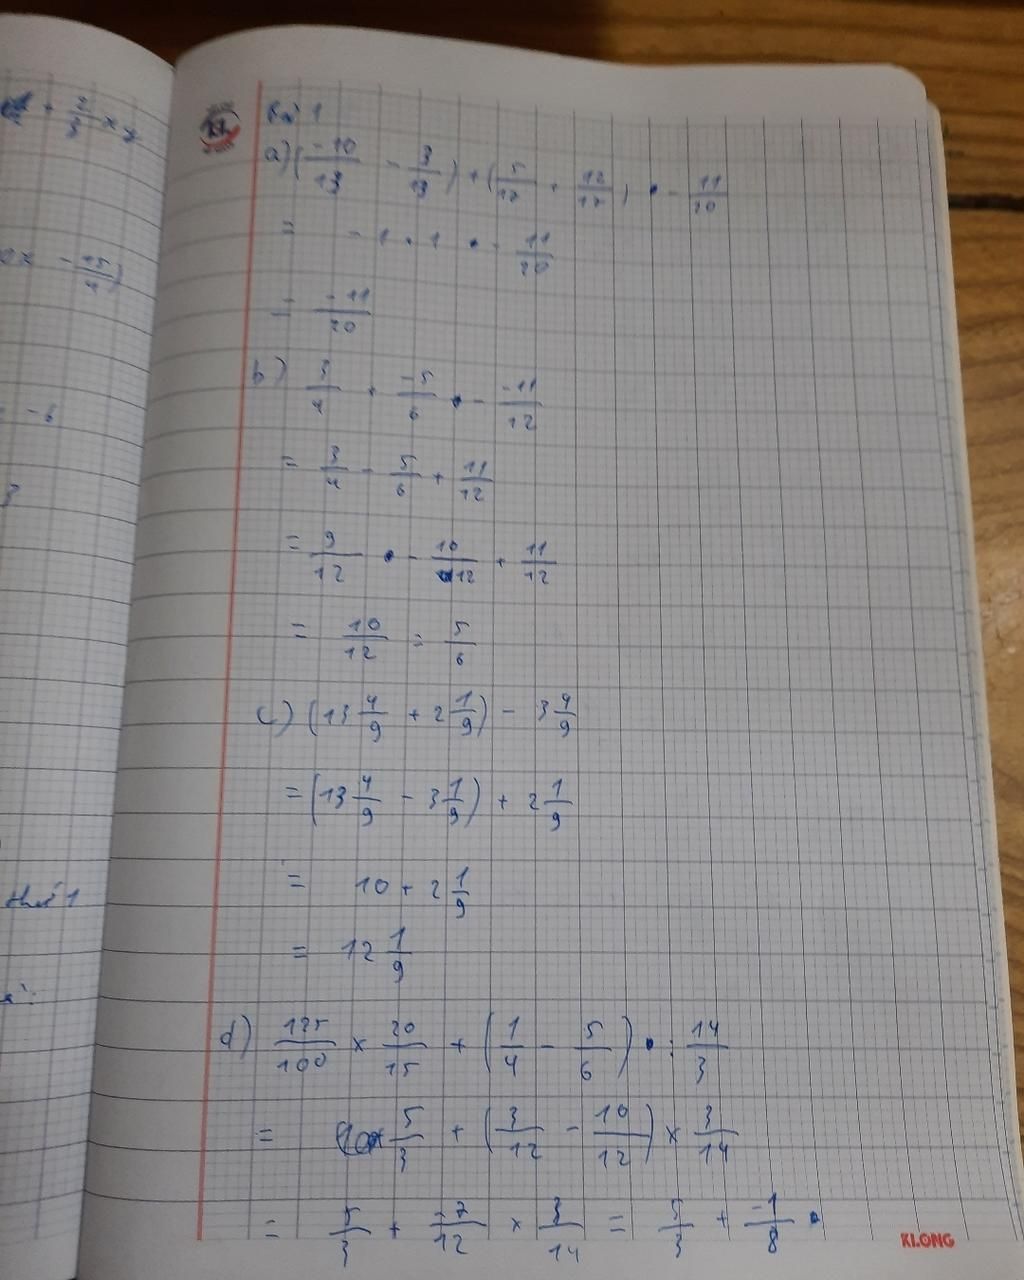 + 2/3 x y
- 15/4)
= -6
3
thứ 1
Bài 1
a) (-10/13 - 3/13) + (5/17 + 12/17) - 11/20
= -1 + 1 - 11/20
= -11/20
b) 3/4 + -5/6 - -11/12
= 3/4 - 5/6 + 11/12
= 9/12 - 10/12 + 11/12
= 10/12 = 5/6
c) (13 4/9 + 2 1/9) - 3 4/9
= (13 4/9 - 3 1/9) + 2 1/9
= 10 + 2 1/9
= 12 1/9
d) 125/100 x 20/15 + (1/4 - 5/6) : 14/3
= 5/3 + (3/12 - 10/12) x 3/14
= 5/3 + -7/12 x 3/14 = 5/3 + -1/8
KLONG